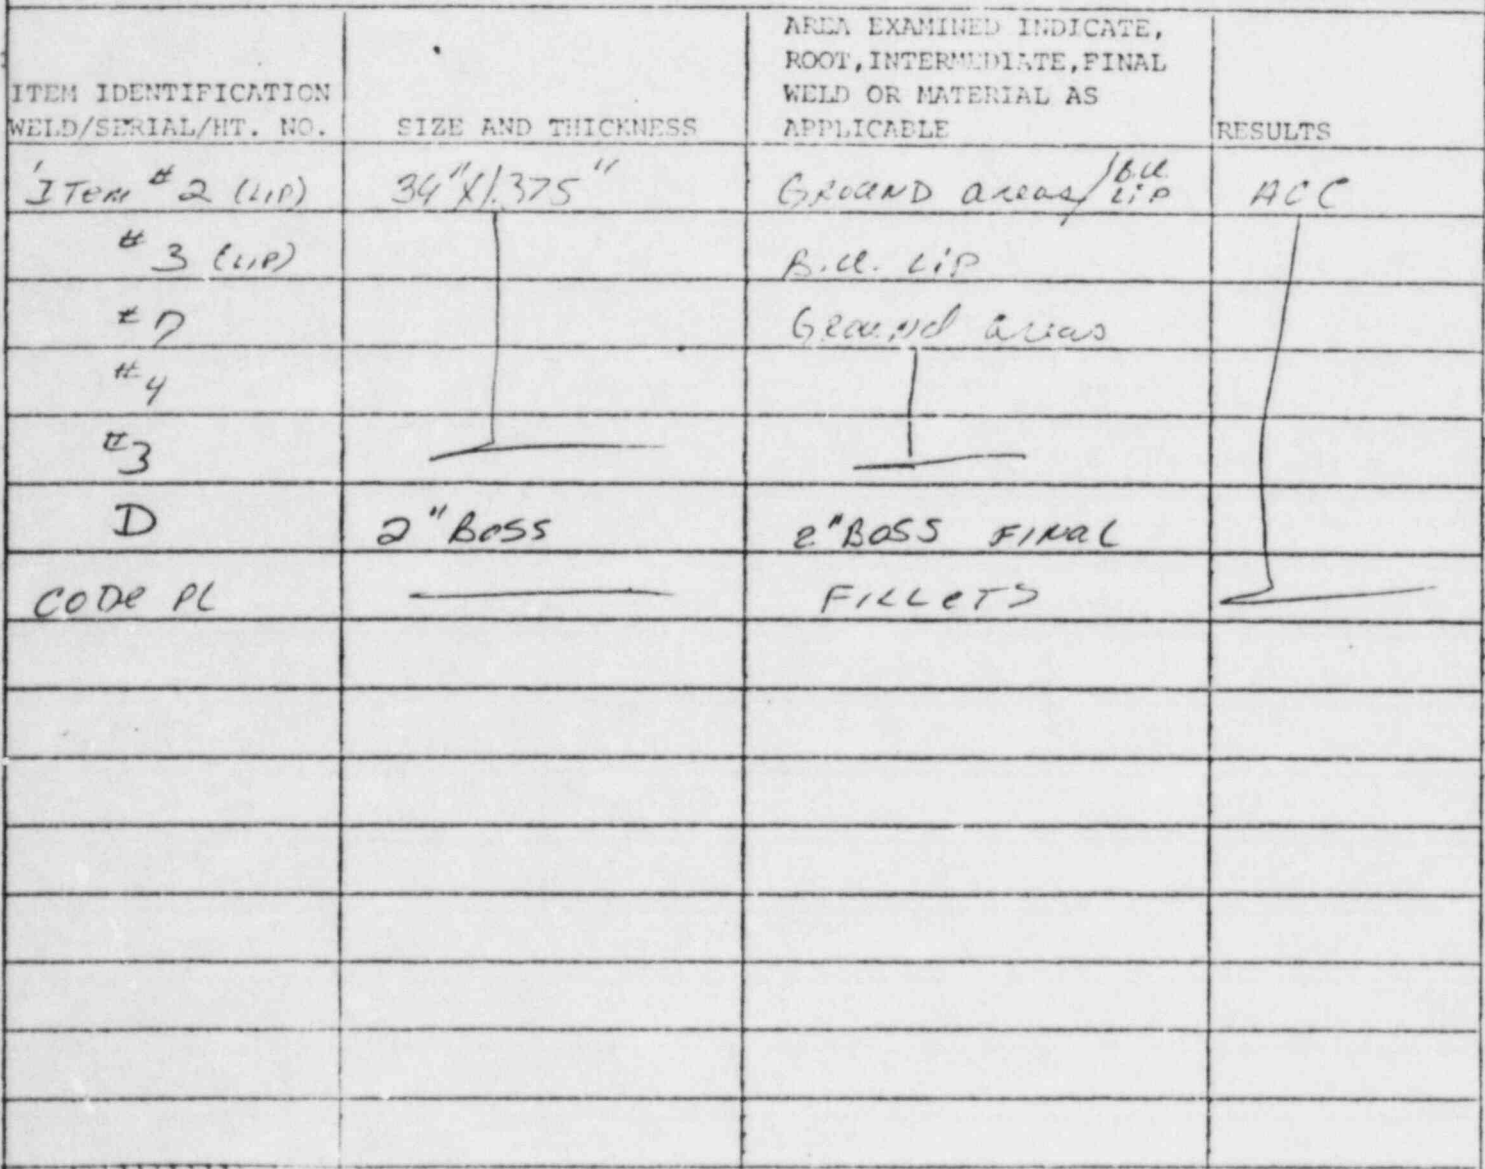 ITEM IDENTIFICATION
WELD/SERIAL/HT. NO.
SIZE AND THICKNESS
AREA EXAMINED INDICATE,
ROOT, INTERMEDIATE, FINAL
WELD OR MATERIAL AS
APPLICABLE
RESULTS
ITem # 2 (LIP) 34" X 1.375" GROUND areas / B.U. LIP ACC
# 3 (LIP) B.U. LIP
# 7 Ground areas
# 4
# 3
D 2" BOSS 2" BOSS FINAL
CODE PL FILLETS